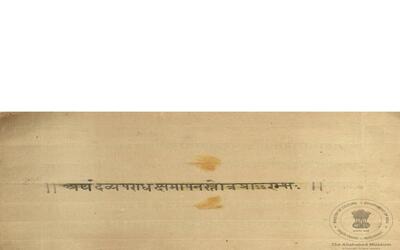 ॥ अथ देव्यपराधक्षमापनस्तोत्र प्रारम्भः ॥
The Allahabad Museum